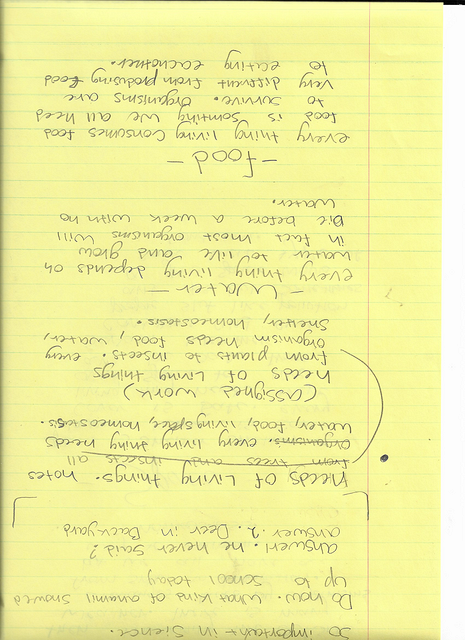 So important in Sience.
Do now. What kind of anamil showed
up to school today
answer: he never said?
answer. 2. Deer in Backyard
Needs of Living things. notes
from trees and insects all
organisms. every living thing needs
Water, food, living space, homeostasis.
(assigned work)
Needs of Living things
from plants to insects. every
organism needs food, water,
Shelter, homeostasis.
- Water -
every thing living depends on
water to live and grow
in fact most organisms Will
Die before a week with no
Water.
- food -
every thing living Consumes food
food is somting we all need
to survive. Organisms are
very different from producing food
to eating eachother.